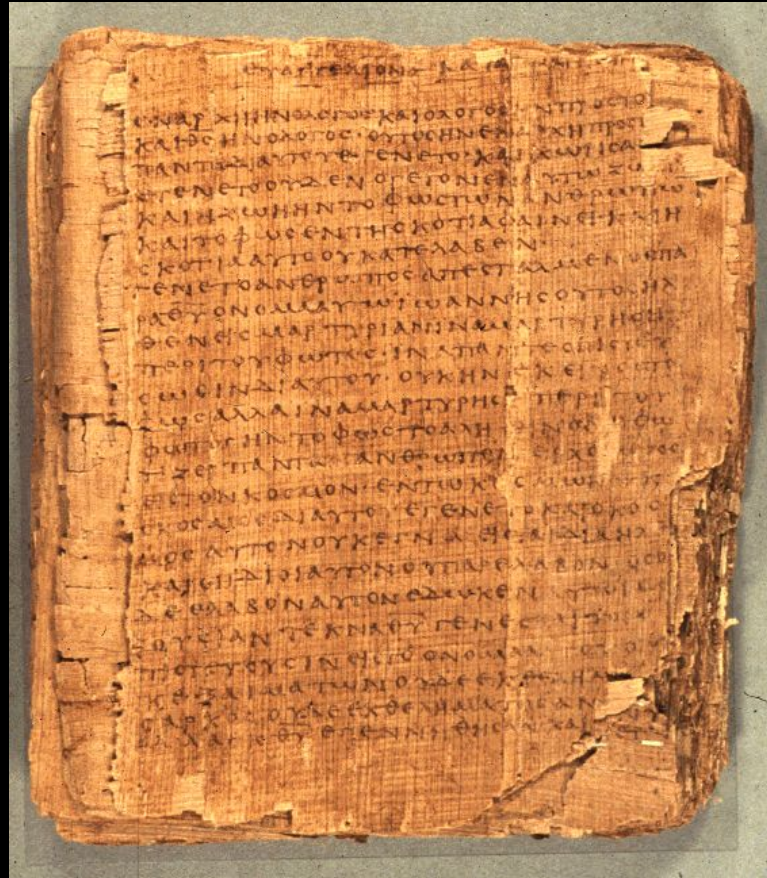 ΕΥΑΓΓΕΛΙΟΝ ΚΑΤΑ
ΕΝΑΡΧΗΗΝΟΛΟΓΟΣΚΑΙΟΛΟΓΟΣ ΗΝΠΡΟΣΤΟ
ΚΑΙΘΣΗΝΟΛΟΓΟΣ·ΟΥΤΟΣΗΝΕΝΑΡΧΗΠΡΟΣ
ΠΑΝΤΑΔΙΑΥΤΟΥΕΓΕΝΕΤΟ·ΚΑΙΧΩΡΙΣΑ
ΕΓΕΝΕΤΟΟΥΔΕΝΟΓΕΓΟΝΕΝΕΝΑΥΤΩΖΩΗ
ΚΑΙΗΖΩΗΗΝΤΟΦΩΣΤΩΝΑΝΘΡΩΠΩ
ΚΑΙΤΟΦΩΣΕΝΤΗΣΚΟΤΙΑΦΑΙΝΕΙ·ΚΑΙΗ
ΣΚΟΤΙΑΑΥΤΟΟΥΚΑΤΕΛΑΒΕΝ·
ΕΓΕΝΕΤΟΑΝΘΡΩΠΟΣΑΠΕΣΤΑΛΜΕΝΟΣΠΑ
ΡΑΘΥΟΝΟΜΑΑΥΤΩΙΩΑΝΝΗΣΟΥΤΟΣΗΛ
ΘΕΝΕΙΣΜΑΡΤΥΡΙΑΝΙΝΑΜΑΡΤΥΡΗΣΗ
ΠΕΡΙΤΟΥΦΩΤΟΣ·ΙΝΑΠΑΝΤΕΣΠΙΣΤΕΥ
ΣΩΣΙΝΔΙΑΥΤΟΥ·ΟΥΚΗΝΕΚΕΙΝΟΣΤΟ
ΦΩΣΑΛΛΑΙΝΑΜΑΡΤΥΡΗΣΗΠΕΡΙΤΟΥ
ΦΩΤΟΣΗΝΤΟΦΩΣΤΟΑΛΗΘΙΝΟΝΟΦΩ
ΤΙΖΕΙΠΑΝΤΑΑΝΘΡΩΠΟΝΕΡΧΟΜΕΝΟΝ
ΕΙΣΤΟΝΚΟΣΜΟΝ·ΕΝΤΩΚΟΣΜΩΗΝ
ΚΟΣΜΟΣΔΙΑΥΤΟΥΕΓΕΝΕΤΟΚΑΙΟΚΟΣ
ΜΟΣΑΥΤΟΝΟΥΚΕΓΝΩΕΙΣΤΑΙΔΙΑΗΛ
ΚΑΙΟΙΙΔΙΟΙΑΥΤΟΝΟΥΠΑΡΕΛΑΒΟΝ
ΔΕΕΛΑΒΟΝΑΥΤΟΝΕΔΩΚΕΝΑΥΤΟΙΣ
ΞΟΥΣΙΑΝΤΕΚΝΑΘΥΓΕΝΕΣ
ΠΙΣΤΕΥΟΥΣΙΝΕΙΣΤΟΟΝΟΜΑ
ΑΙΜΑΤΩΝΟΥΔΕΕΚΘΕΛΗΜΑ
ΣΑΡΚΟΣΟΥΔΕΕΚΘΕΛΗΜΑΤΟΣΑΝ
ΘΥΕΓΕΝΝΗΘΗΣΑΝΚΑΙ